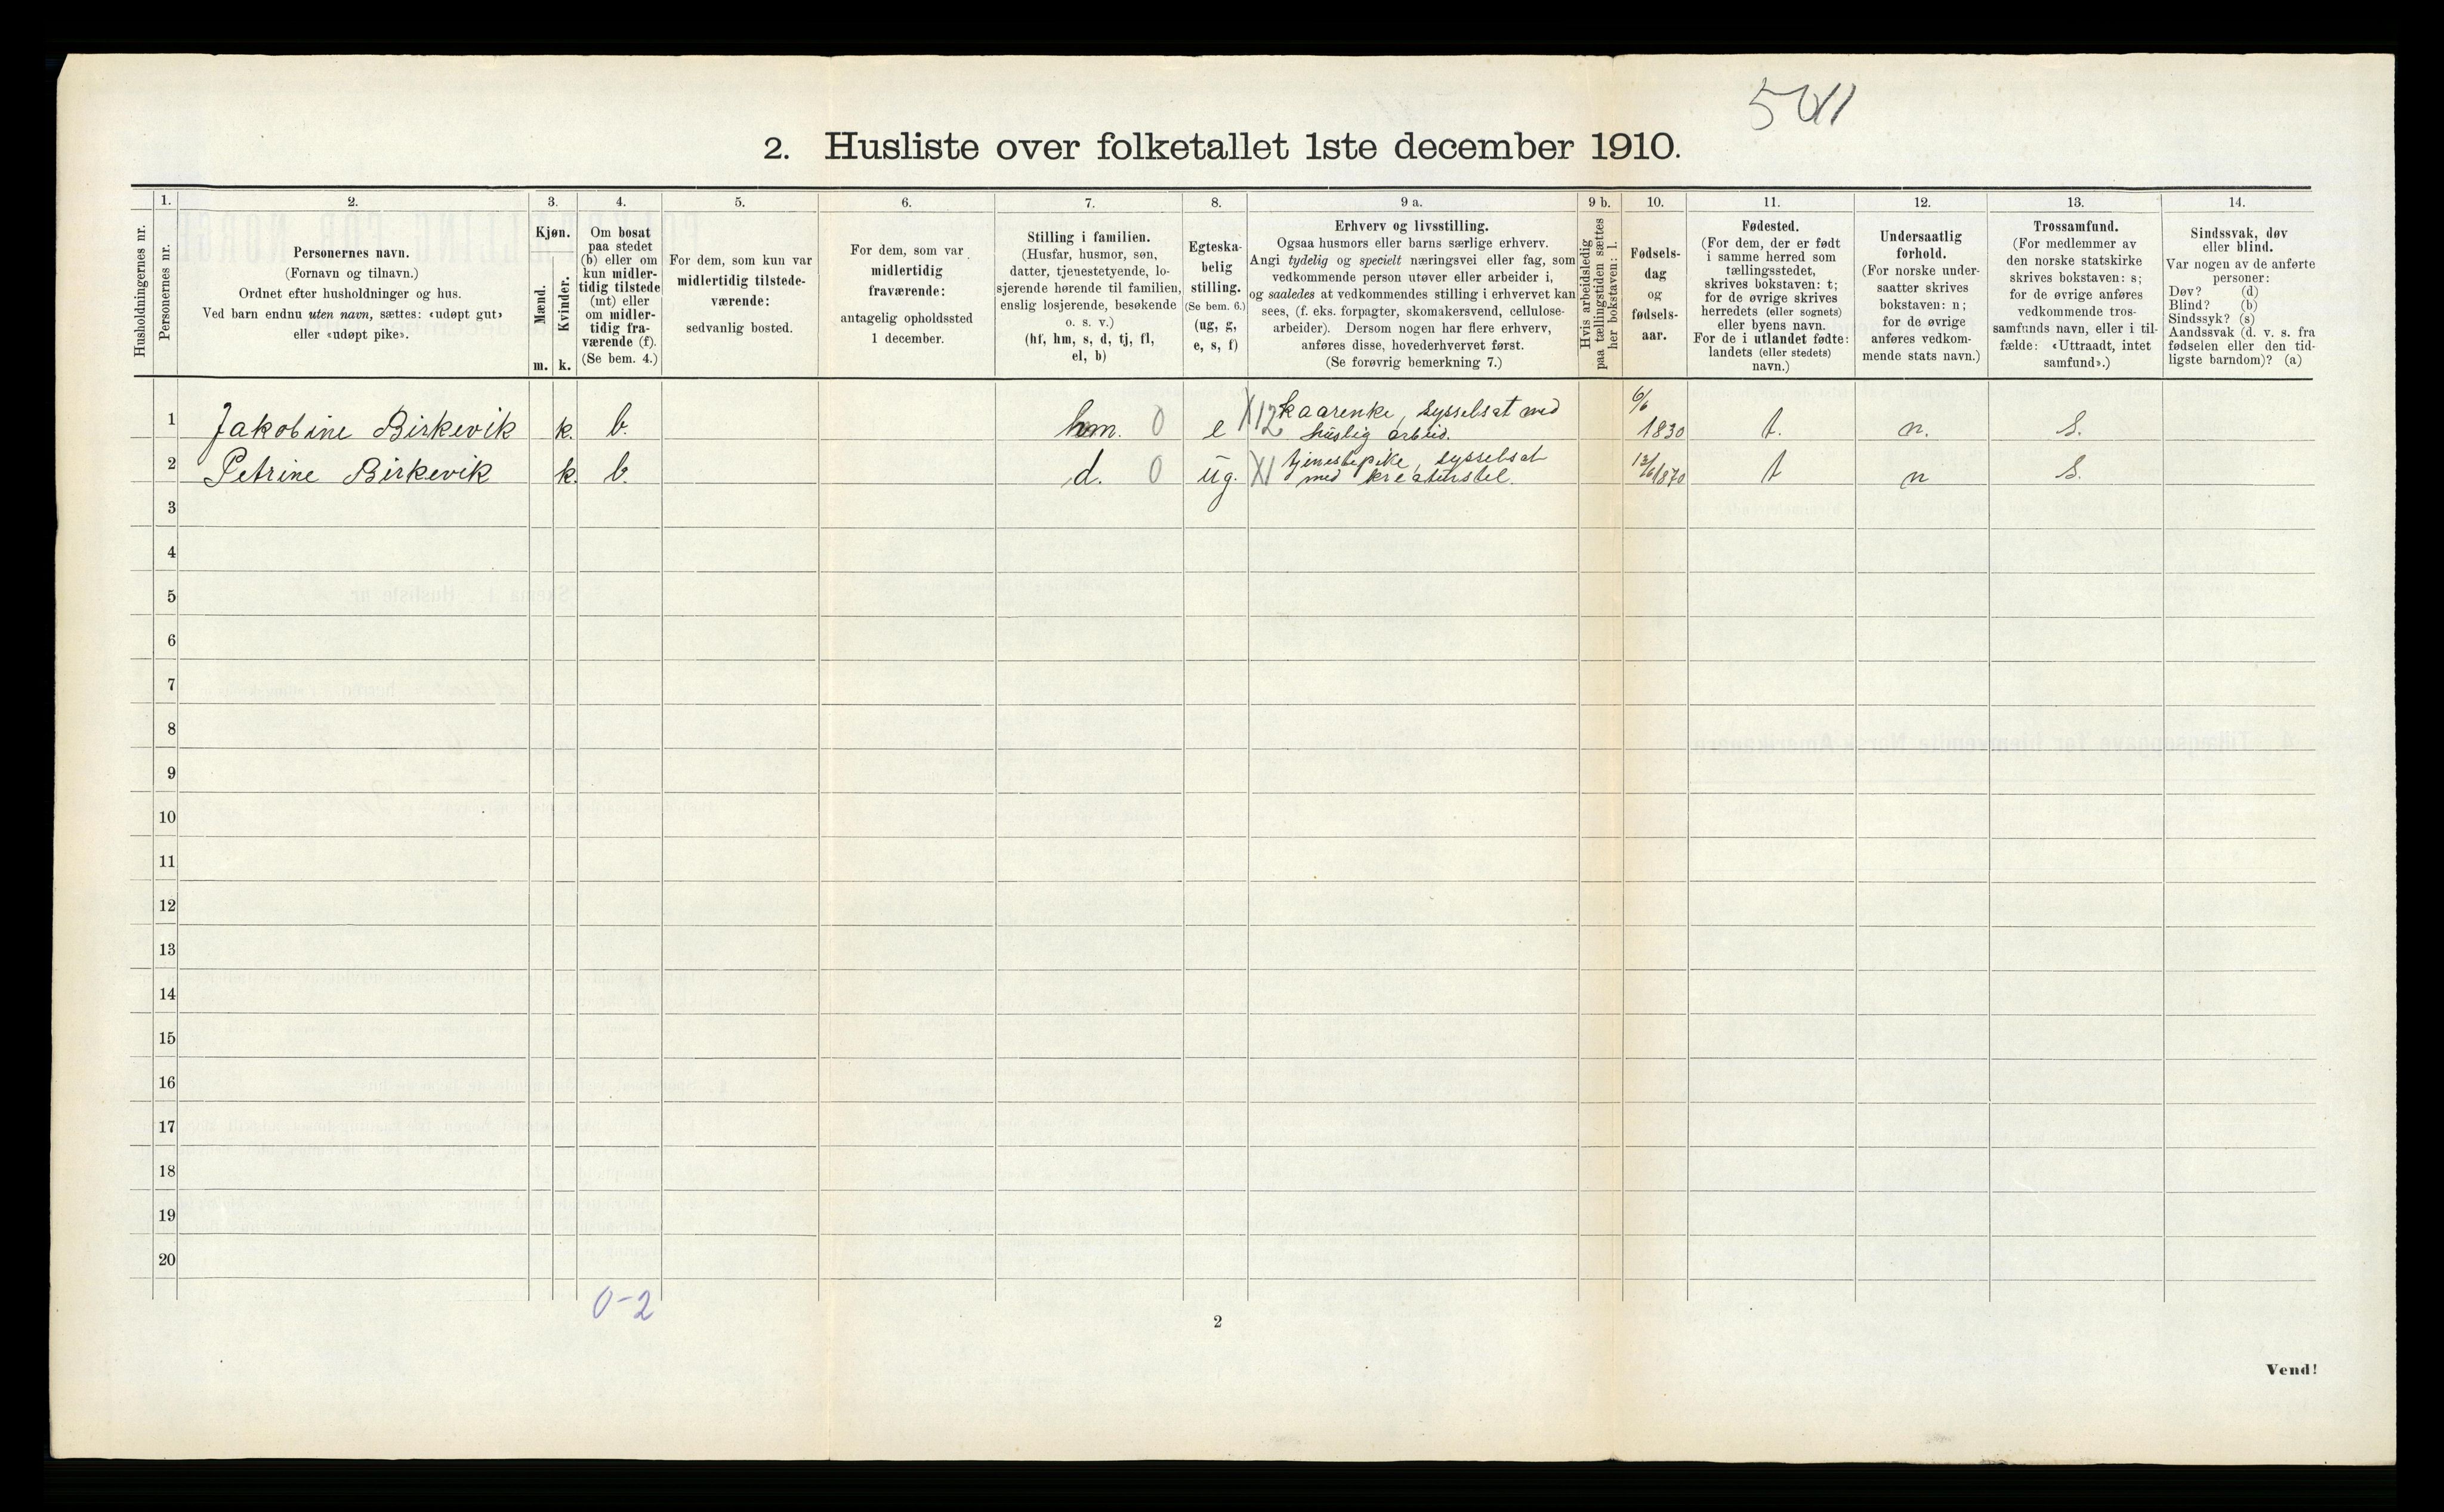 5011
2. Husliste over folketallet 1ste december 1910.
Husholdningernes nr.
1.
Personernes nr.
2.
Personernes navn.
(Fornavn og tilnavn.)
Ordnet efter husholdninger og hus.
Ved barn endnu uten navn, sættes: «udøpt gut»
eller «udøpt pike».
3.
Kjøn.
Mænd.
Kvinder.
m.
k.
4.
Om bosat
paa stedet
(b) eller om
kun midler-
tidig tilstede
(mt) eller
om midler-
tidig fra-
værende (f).
(Se bem. 4.)
5.
For dem, som kun var
midlertidig tilstede-
værende:
sedvanlig bosted.
6.
For dem, som var
midlertidig
fraværende:
antagelig opholdssted
1 december.
7.
Stilling i familien.
(Husfar, husmor, søn,
datter, tjenestetyende, lo-
sjerende hørende til familien,
enslig losjerende, besøkende
o. s. v.)
(hf, hm, s, d, tj, fl,
el, b)
8.
Egteska-
belig
stilling.
(Se bem. 6.)
(ug, g,
e, s, f)
9 a.
Erhverv og livsstilling.
Ogsaa husmors eller barns særlige erhverv.
Angi tydelig og specielt næringsvei eller fag, som
vedkommende person utøver eller arbeider i,
og saaledes at vedkommendes stilling i erhvervet kan
sees, (f. eks. forpagter, skomakersvend, cellulose-
arbeider). Dersom nogen har flere erhverv,
anføres disse, hovederhvervet først.
(Se forøvrig bemerkning 7.)
9 b.
Hvis arbeidsledig
paa tællingstiden sættes
her bokstaven: l.
10.
Fødsels-
dag
og
fødsels-
aar.
11.
Fødested.
(For dem, der er født
i samme herred som
tællingsstedet,
skrives bokstaven: t;
for de øvrige skrives
herredets (eller sognets)
eller byens navn.
For de i utlandet fødte:
landets (eller stedets)
navn.)
12.
Undersaatlig
forhold.
(For norske under-
saatter skrives
bokstaven: n;
for de øvrige
anføres vedkom-
mende stats navn.)
13.
Trossamfund.
(For medlemmer av
den norske statskirke
skrives bokstaven: s;
for de øvrige anføres
vedkommende tros-
samfunds navn, eller i til-
fælde: «Uttraadt, intet
samfund».)
14.
Sindssvak, døv
eller blind.
Var nogen av de anførte
personer:
Døv? (d)
Blind? (b)
Sindssyk? (s)
Aandssvak (d. v. s. fra
fødselen eller den tid-
ligste barndom)? (a)
1 Jakobine Birkevik k. b. hm. 0 e X12 kaarenke, sysselsat med
huslig arbeid. 6/6 1830 t. n. s.
2 Petrine Birkevik k. b. d. 0 ug. X1 tjenestepike, sysselsat
med kreaturstel. 12/6 1870 t n s.
3
4
5
6
7
8
9
10
11
12
13
14
15
16
17
18
19
20
0-2
2
Vend!